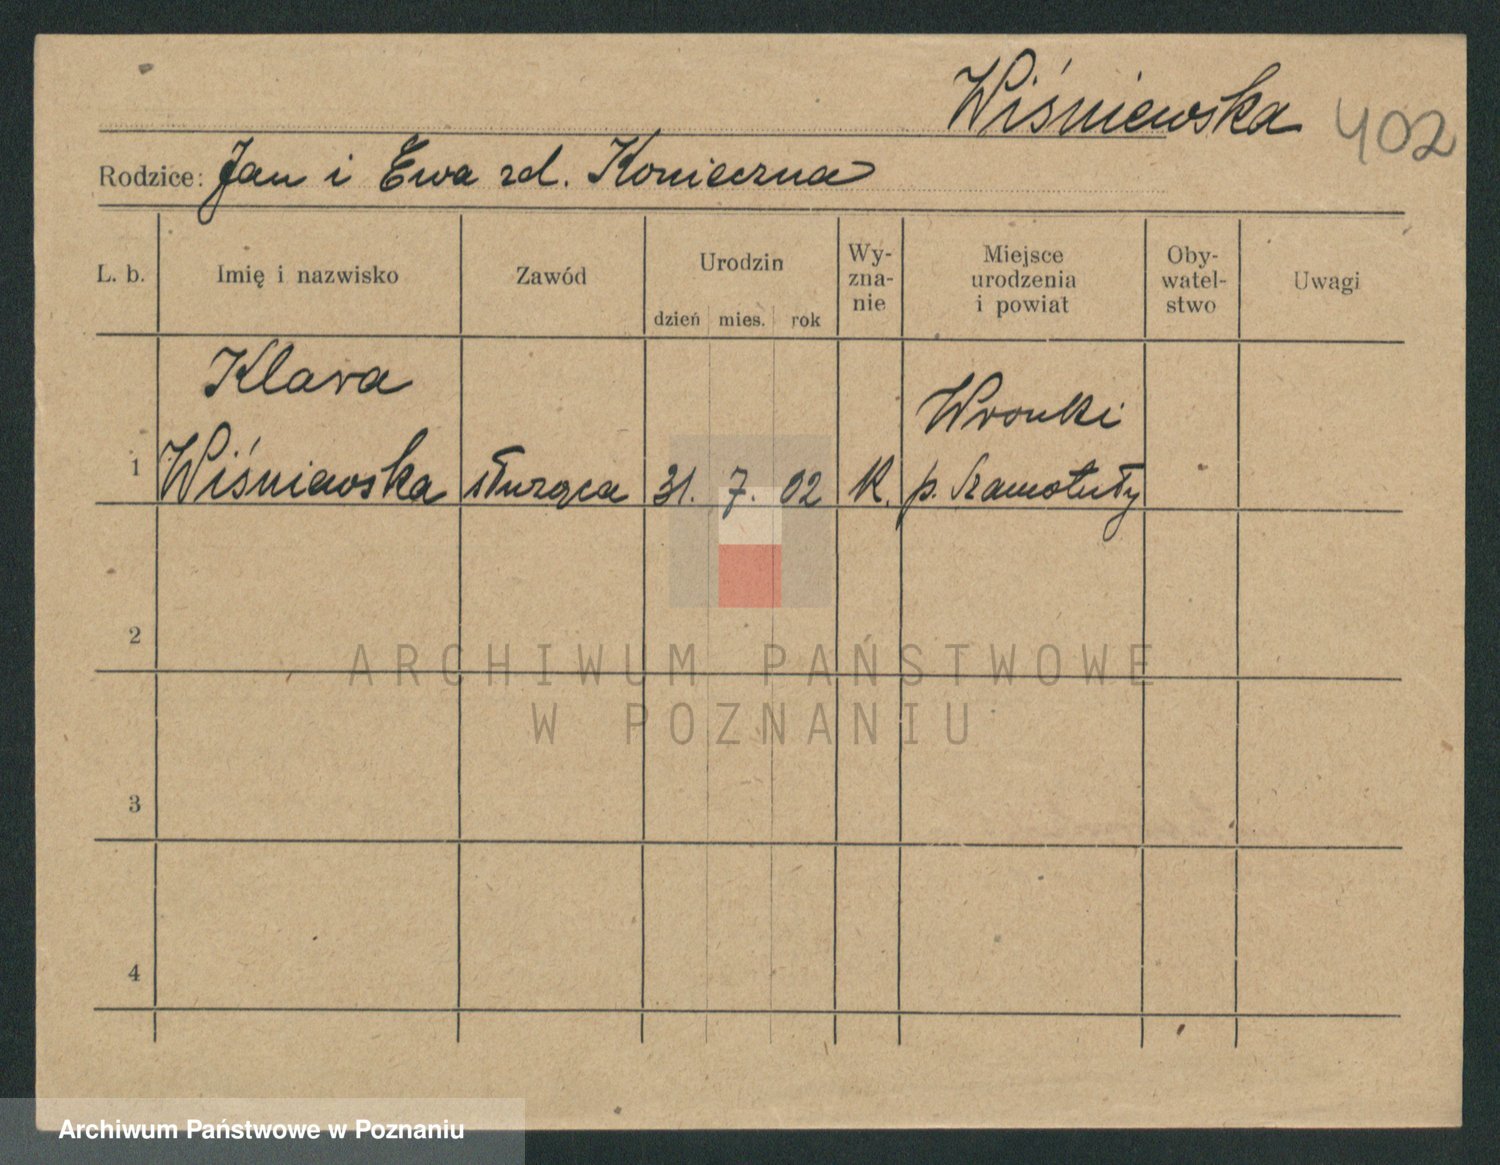 Wiśniewska 402
Rodzice: Jan i Ewa zd. Konieczna
L. b. Imię i nazwisko Zawód Urodzin Wy- Miejsce Oby- Uwagi
zna- urodzenia watel-
nie i powiat stwo
dzień mies. rok
Klara Wronki
1 Wiśniewska służąca 31. 7. 02 K. p. Szamotuły
2
ARCHIWUM PAŃSTWOWE
W POZNANIU
3
4
Archiwum Państwowe w Poznaniu